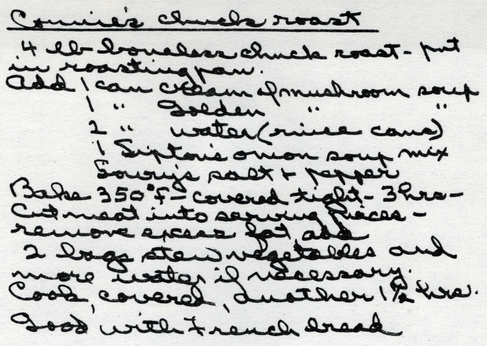 Connie's chuck roast
4 lb boneless chuck roast - put
in roasting pan.
Add 1 can cream of mushroom soup
1 " Golden " "
2 " water (rinse cans)
1 Lipton's onion soup mix
Lowry's salt + pepper
Bake 350°f - covered tight - 3 hrs -
Cut meat into serving pieces -
remove excess fat, add
2 bags stew vegetables and
more water if necessary.
Cook, covered, another 1 1/2 hrs.
Good with French bread